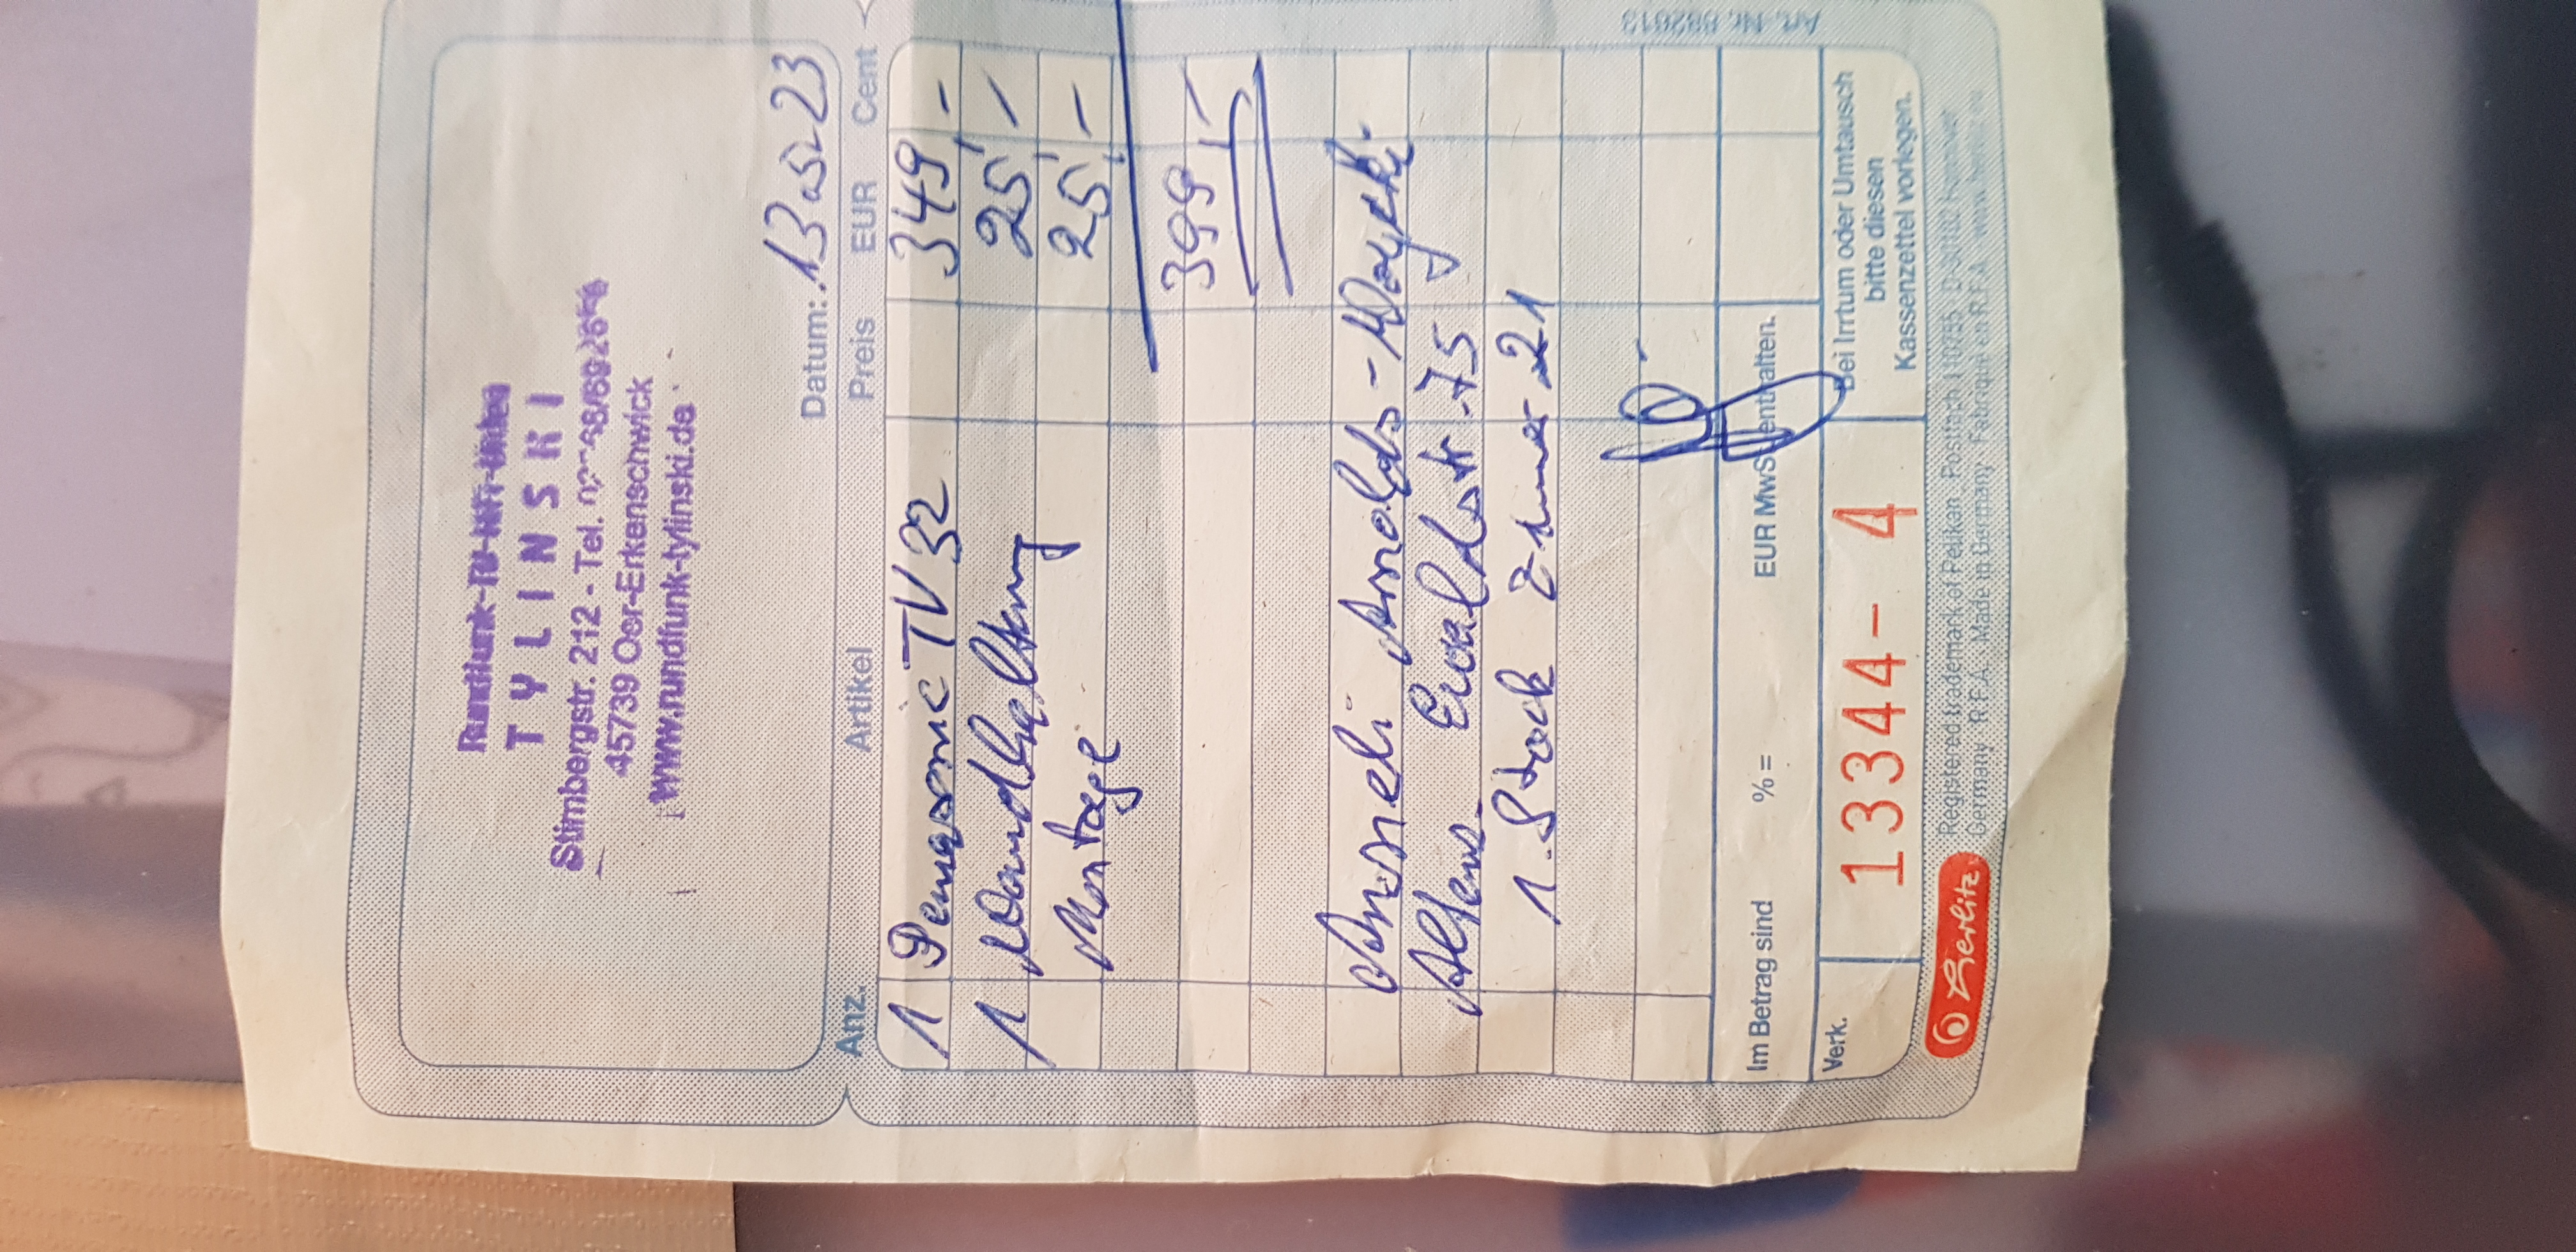 Rundfunk-TV-HiFi-Video
TYLINSKI
Stimbergstr. 212 - Tel.
45739 Oer-Erkenschwick
www.rundfunk-tylinski.de
Datum: 13 05 23
Anz. Artikel Preis EUR Cent
1 Panasonic TV 32 349,-
1 Wandhaltung 25,-
Montage 25,-
399,-
Anneli Arnolds-
Altenz. Ewaldstr. 75
1. Stock Zimmer 21
Im Betrag sind % = EUR MwSt enthalten.
Verk.
13344- 4
Bei Irrtum oder Umtausch
bitte diesen
Kassenzettel vorlegen.
Herlitz
Registered trademark of Pelikan
Germany R.F.A. Made in Germany Fabriqué en R.F.A. www.
Art. Nr. 882613